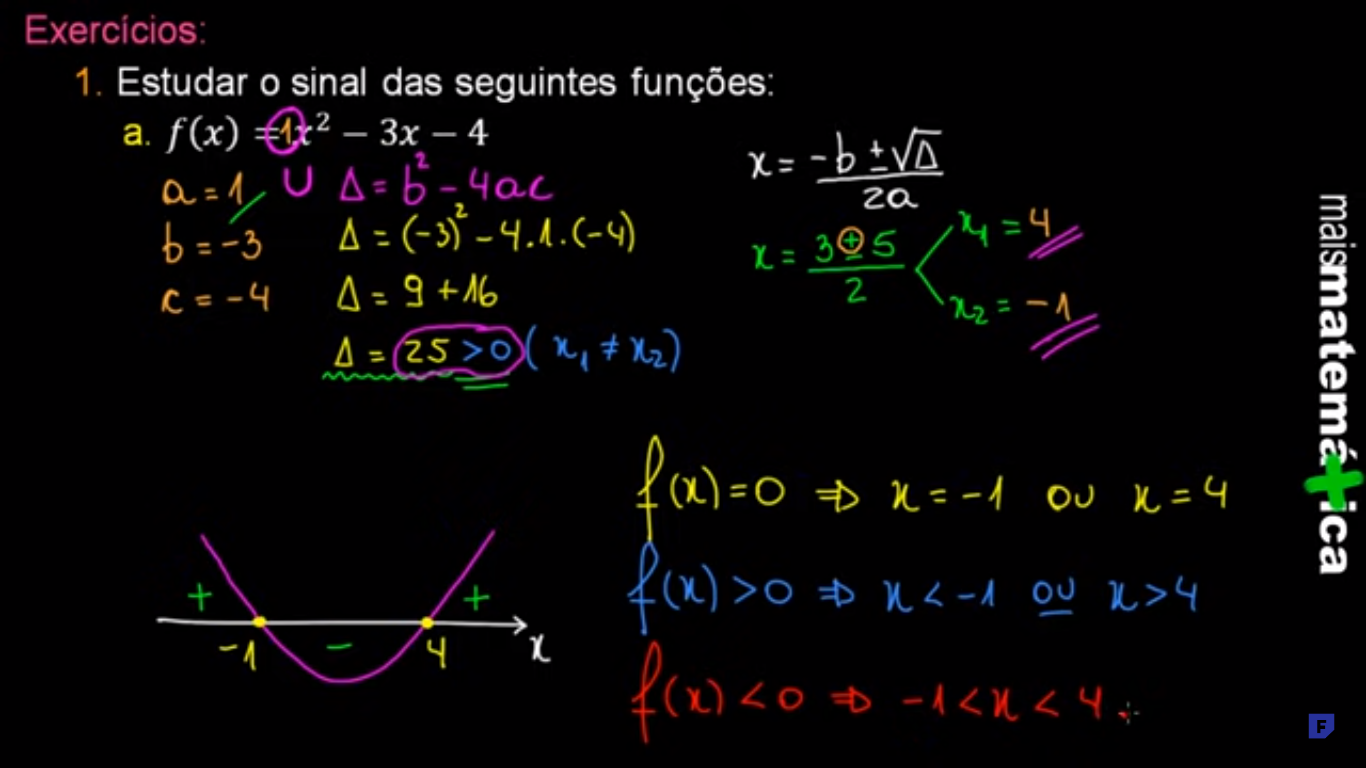 Exercícios:
1. Estudar o sinal das seguintes funções:
a. f(x) = 1x² − 3x − 4
a = 1 ∪ Δ = b² - 4ac
b = -3 Δ = (-3)² - 4.1.(-4)
c = -4 Δ = 9 + 16
Δ = 25 > 0 ( x₁ ≠ x₂)
x = -b ± √Δ
2a
x = 3 ± 5
2
x₁ = 4
x₂ = -1
f(x) = 0 ⇒ x = -1 ou x = 4
f(x) > 0 ⇒ x < -1 ou x > 4
f(x) < 0 ⇒ -1 < x < 4.
+ +
-1 − 4 x
maismatemá+ica
F